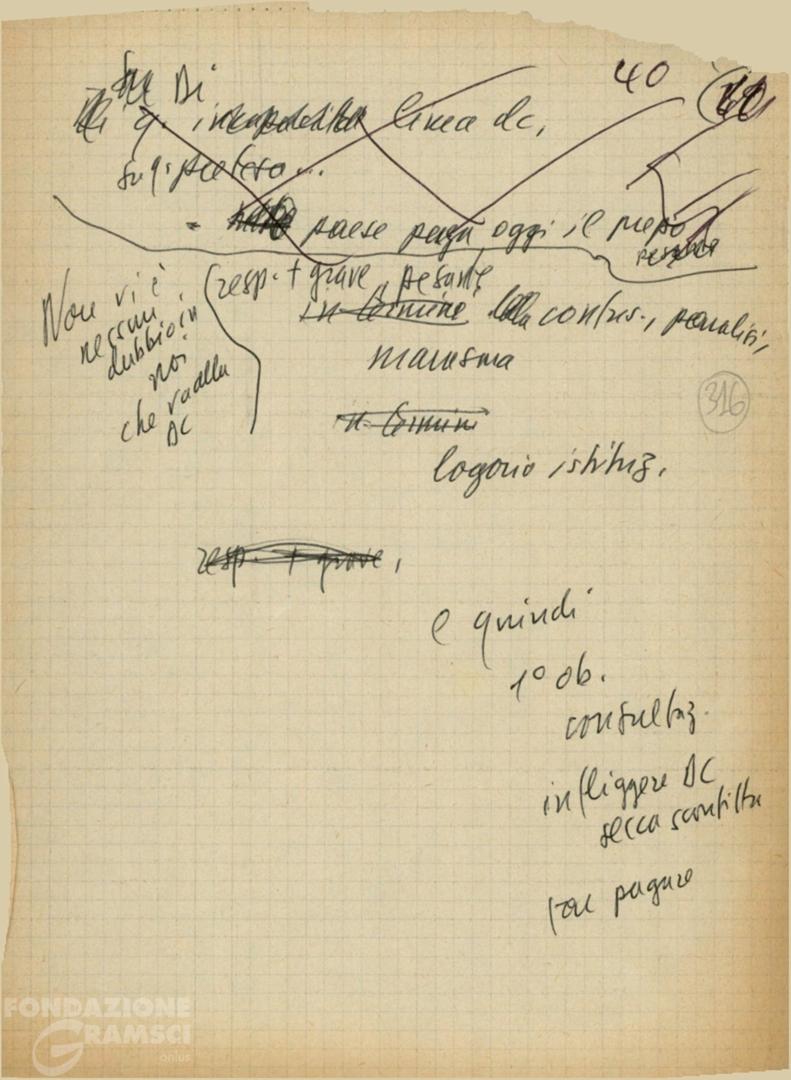 40
Di
linea dc,
su q. preteso...
- paese paga oggi il prezzo
pesante
(resp. + grave pesante
in termine della confus., paralisi,
marasma
Non vi è
nessun
dubbio in
noi
che va alla
DC
316
in termini
logorio istituz.
resp. + grave,
e quindi
1° ob.
consultaz.
infliggere DC
secca sconfitta
far pagare
FONDAZIONE
GRAMSCI
onlus